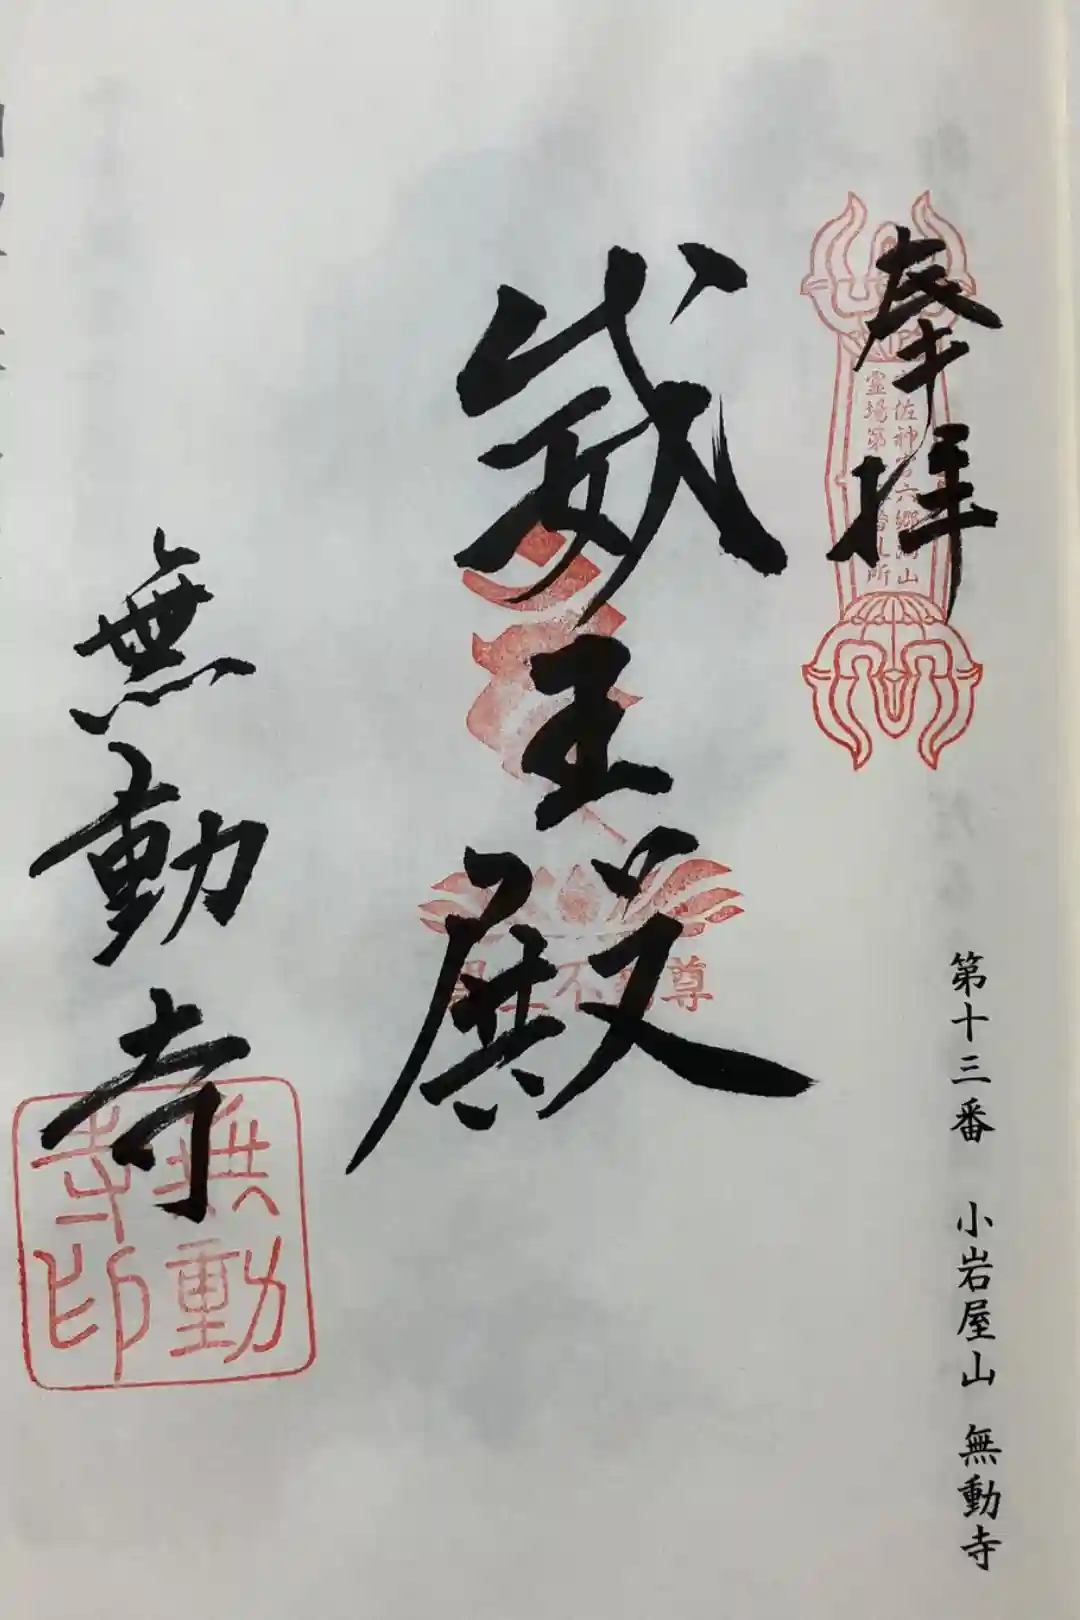 奉拝
佐神宮六郷満山
霊場第
札所
威王殿
不動尊
無動寺
無動寺印
第十三番 小岩屋山 無動寺